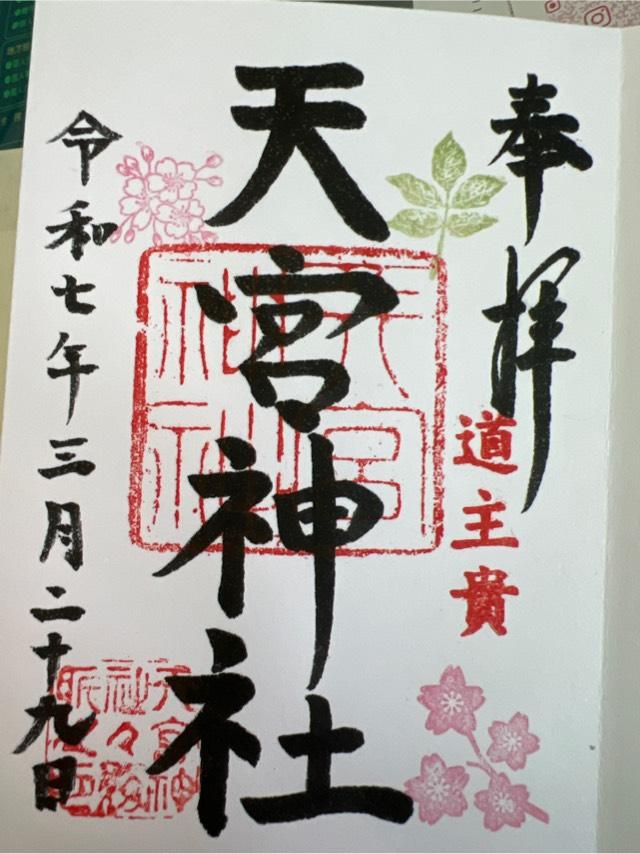 奉拝
道主貴
天宮神社
天宮神社
令和七年三月二十九日
天宮神社々務所之印